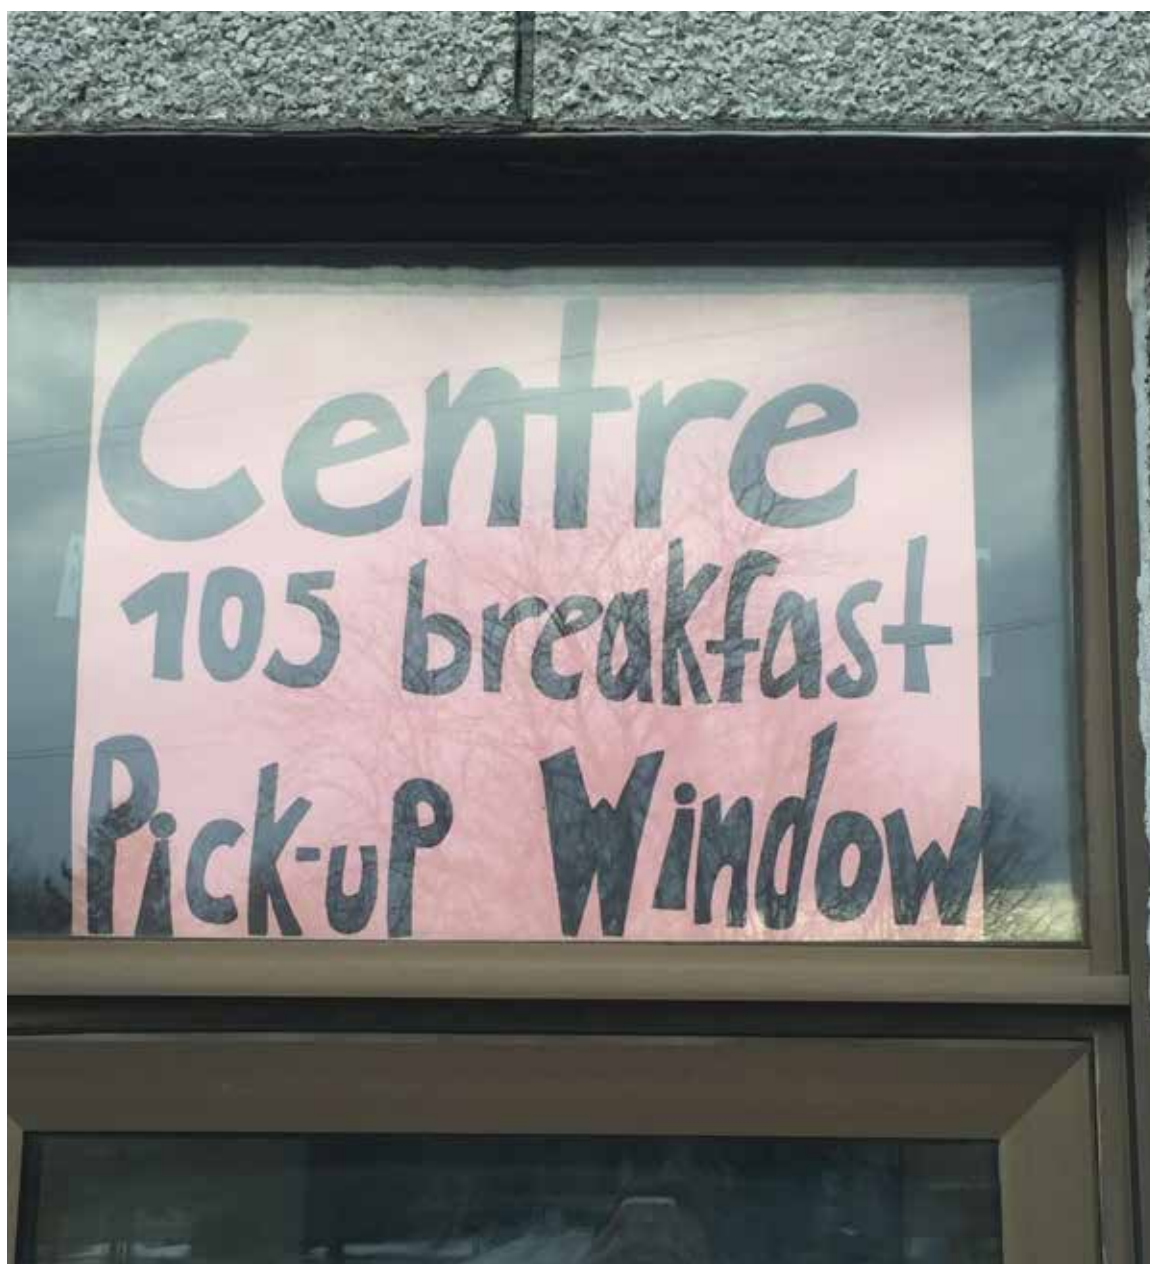 Centre
105 breakfast
Pick-up Window